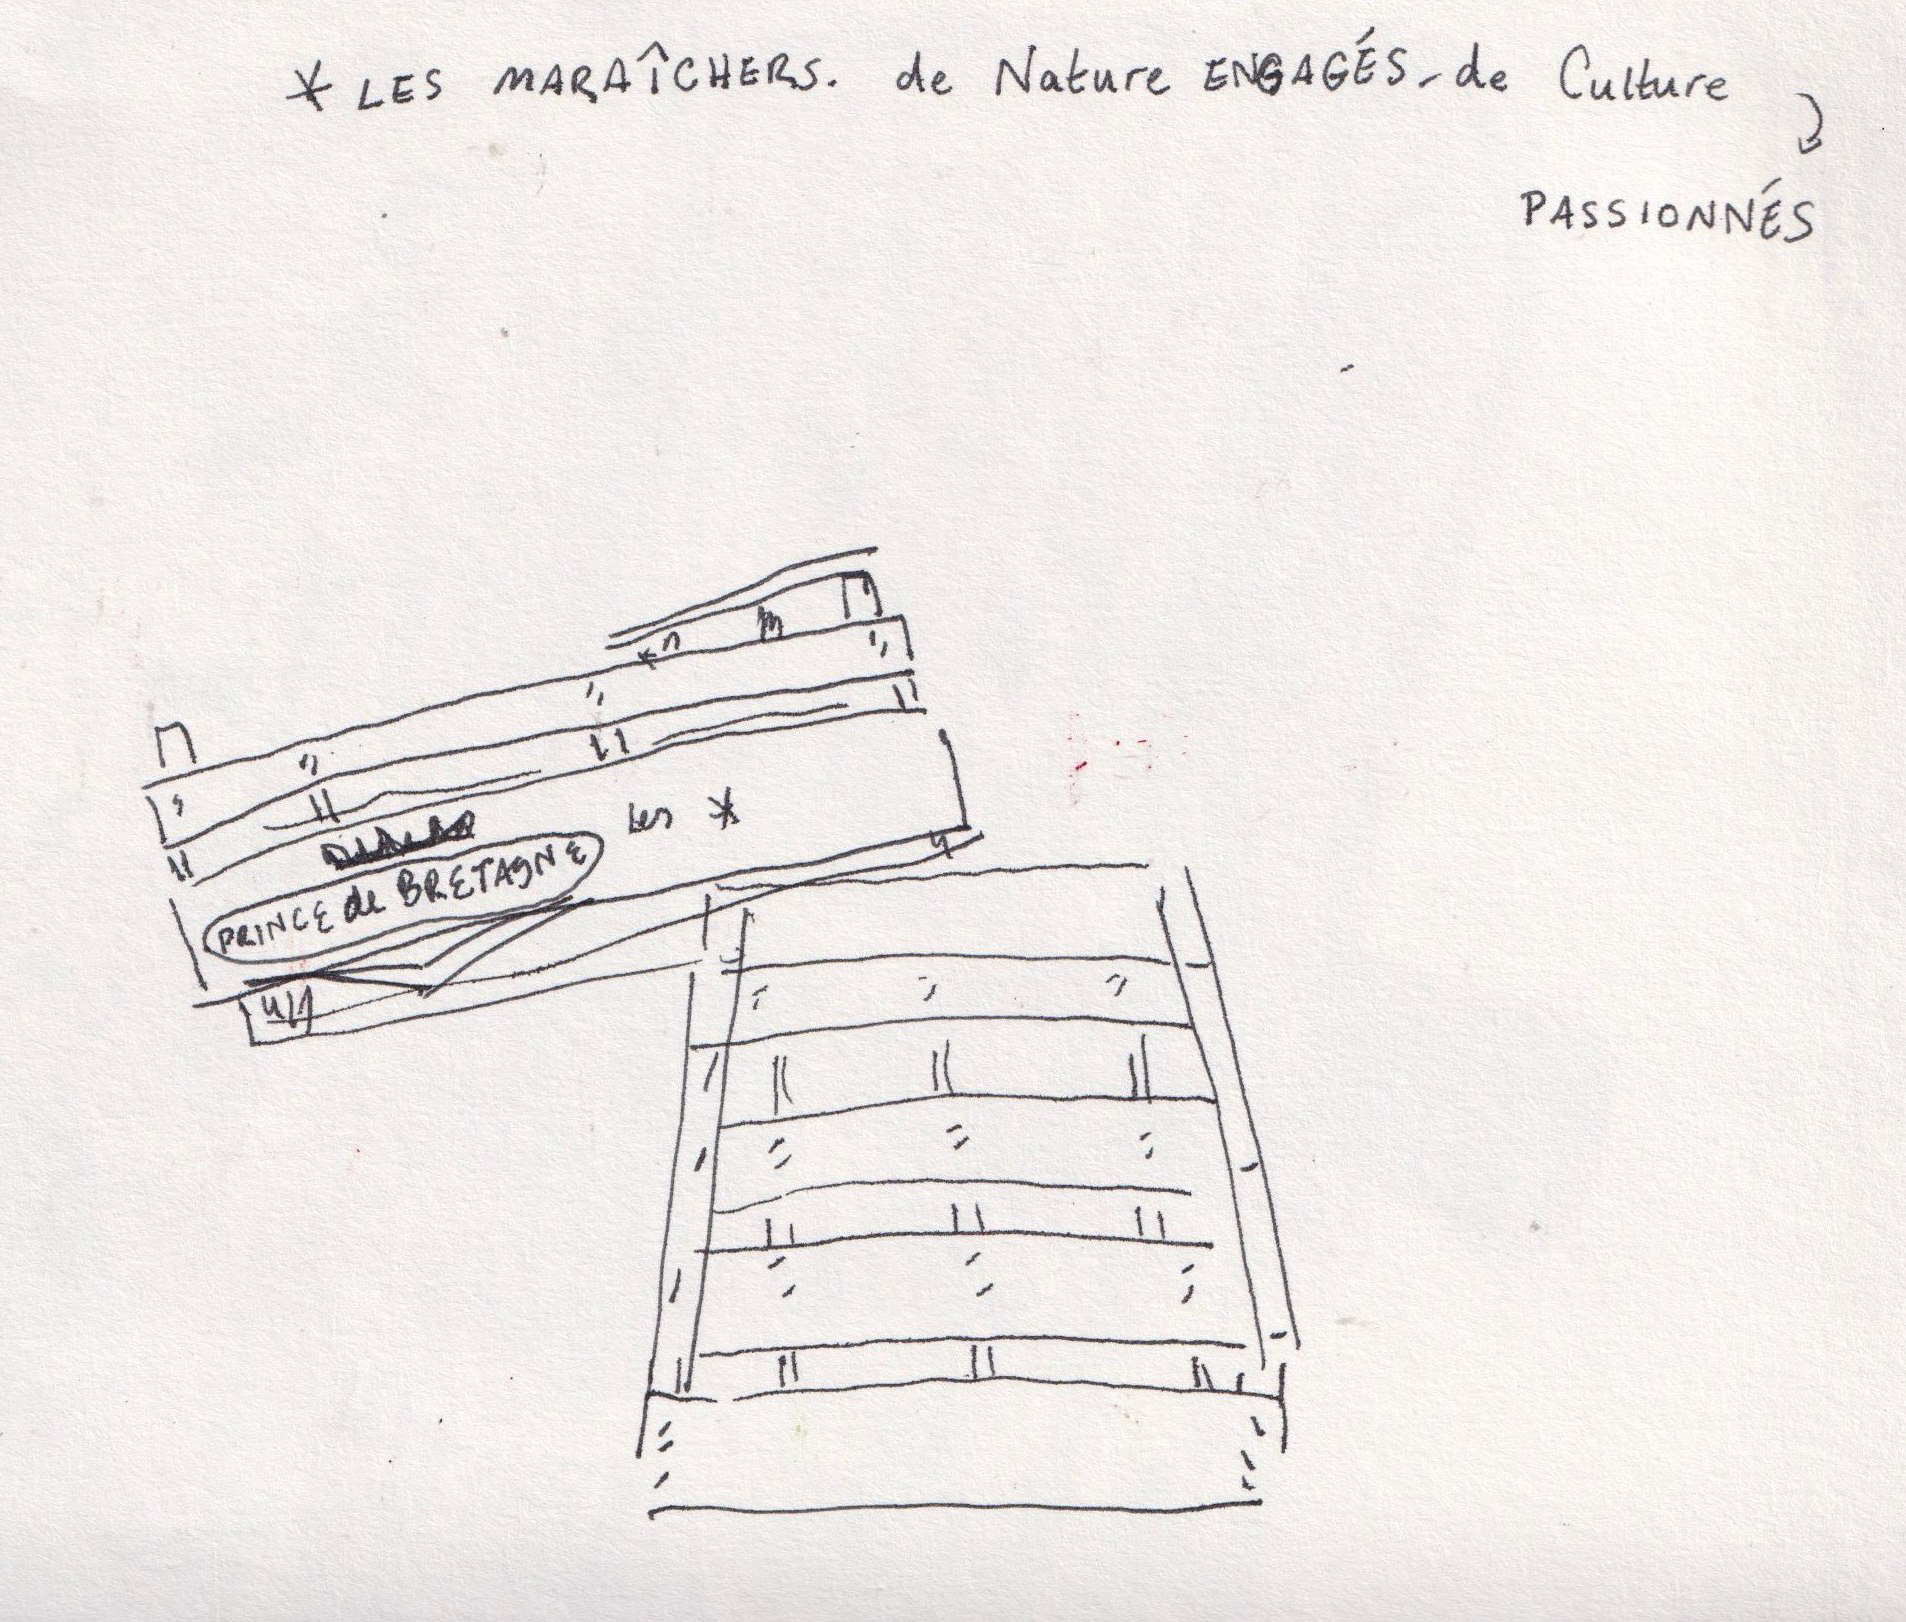 * LES MARAÎCHERS. de Nature ENGAGÉS - de Culture
PASSIONNÉS
Les *
PRINCE de BRETAGNE